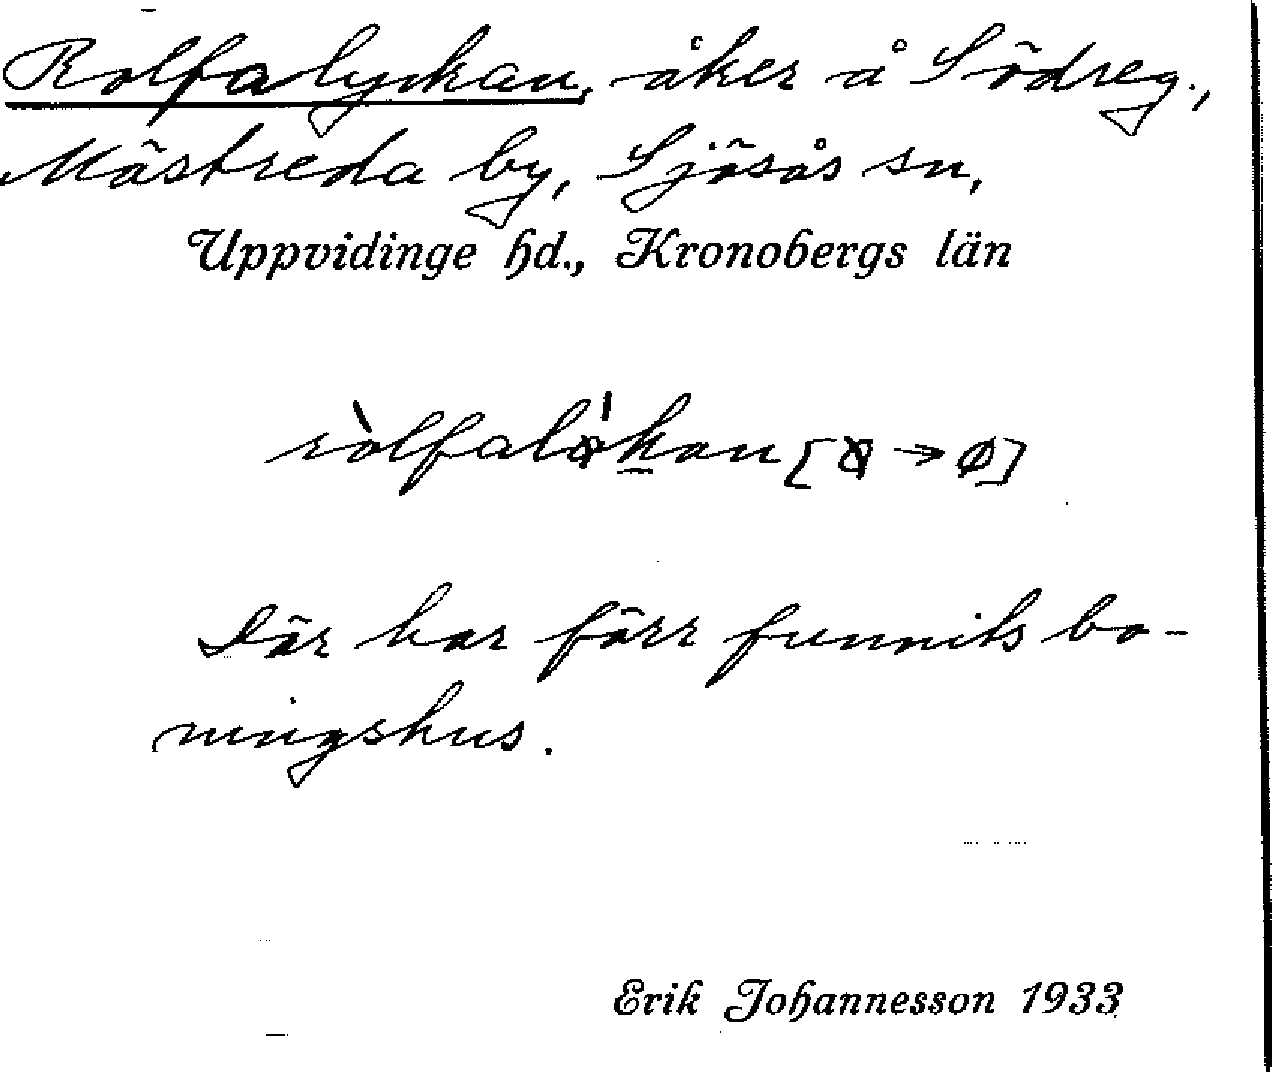 Rolfalyckan, åker å Södreg.,
Mästreda by, Sjösås sn,
Uppvidinge hd., Kronobergs län
Där har förr funnits bo-
ningshus.
Erik Johannesson 1933